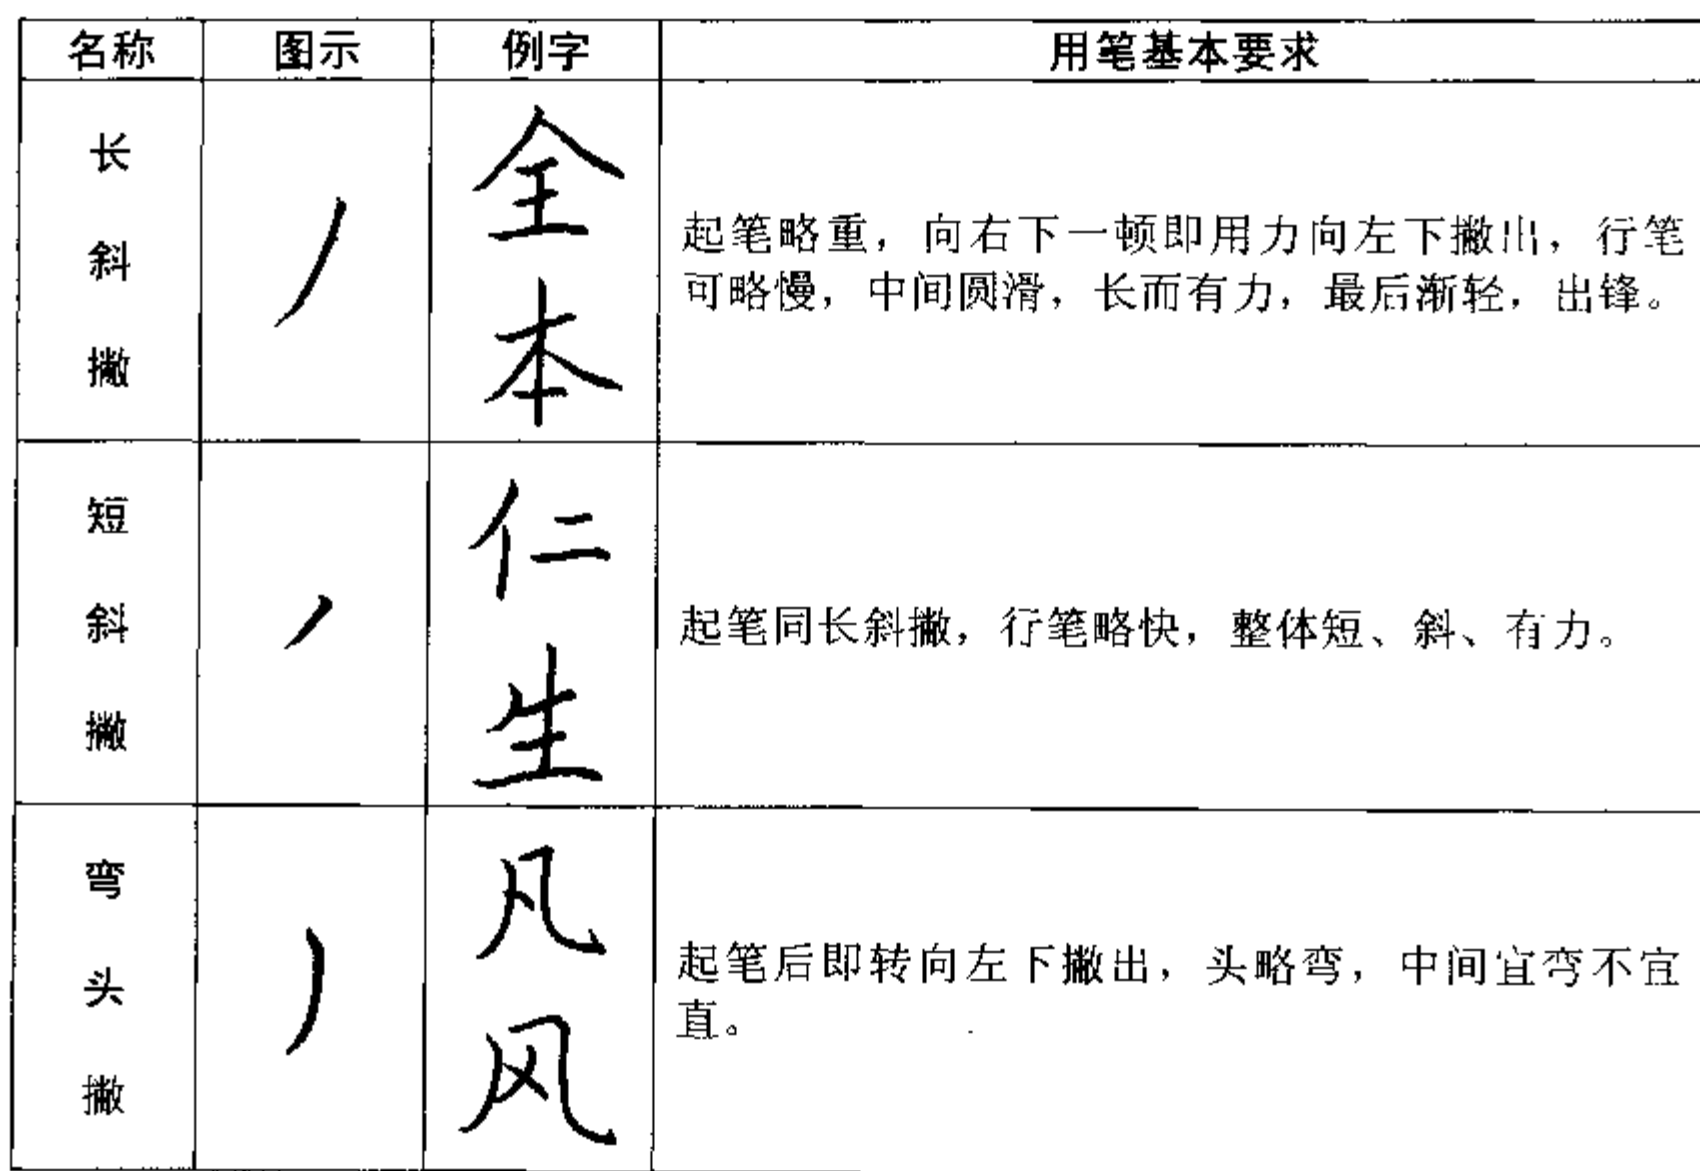 名称 图示 例字 用笔基本要求
长斜撇 丿 全本 起笔略重，向右下一顿即用力向左下撇出，行笔
可略慢，中间圆滑，长而有力，最后渐轻，出锋。
短斜撇 丿 仁生 起笔同长斜撇，行笔略快，整体短、斜、有力。
弯头撇 丿 凡风 起笔后即转向左下撇出，头略弯，中间宜弯不宜
直。